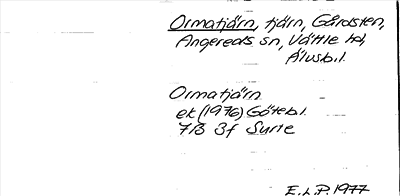 Ormatjärn, tjärn, Gårdsten,
Angereds sn, Vättle hd,
Älvsb.l.
Ormatjärn
ek (1976) Göteb.l.
7B 3f Surte
E.L.P. 1977